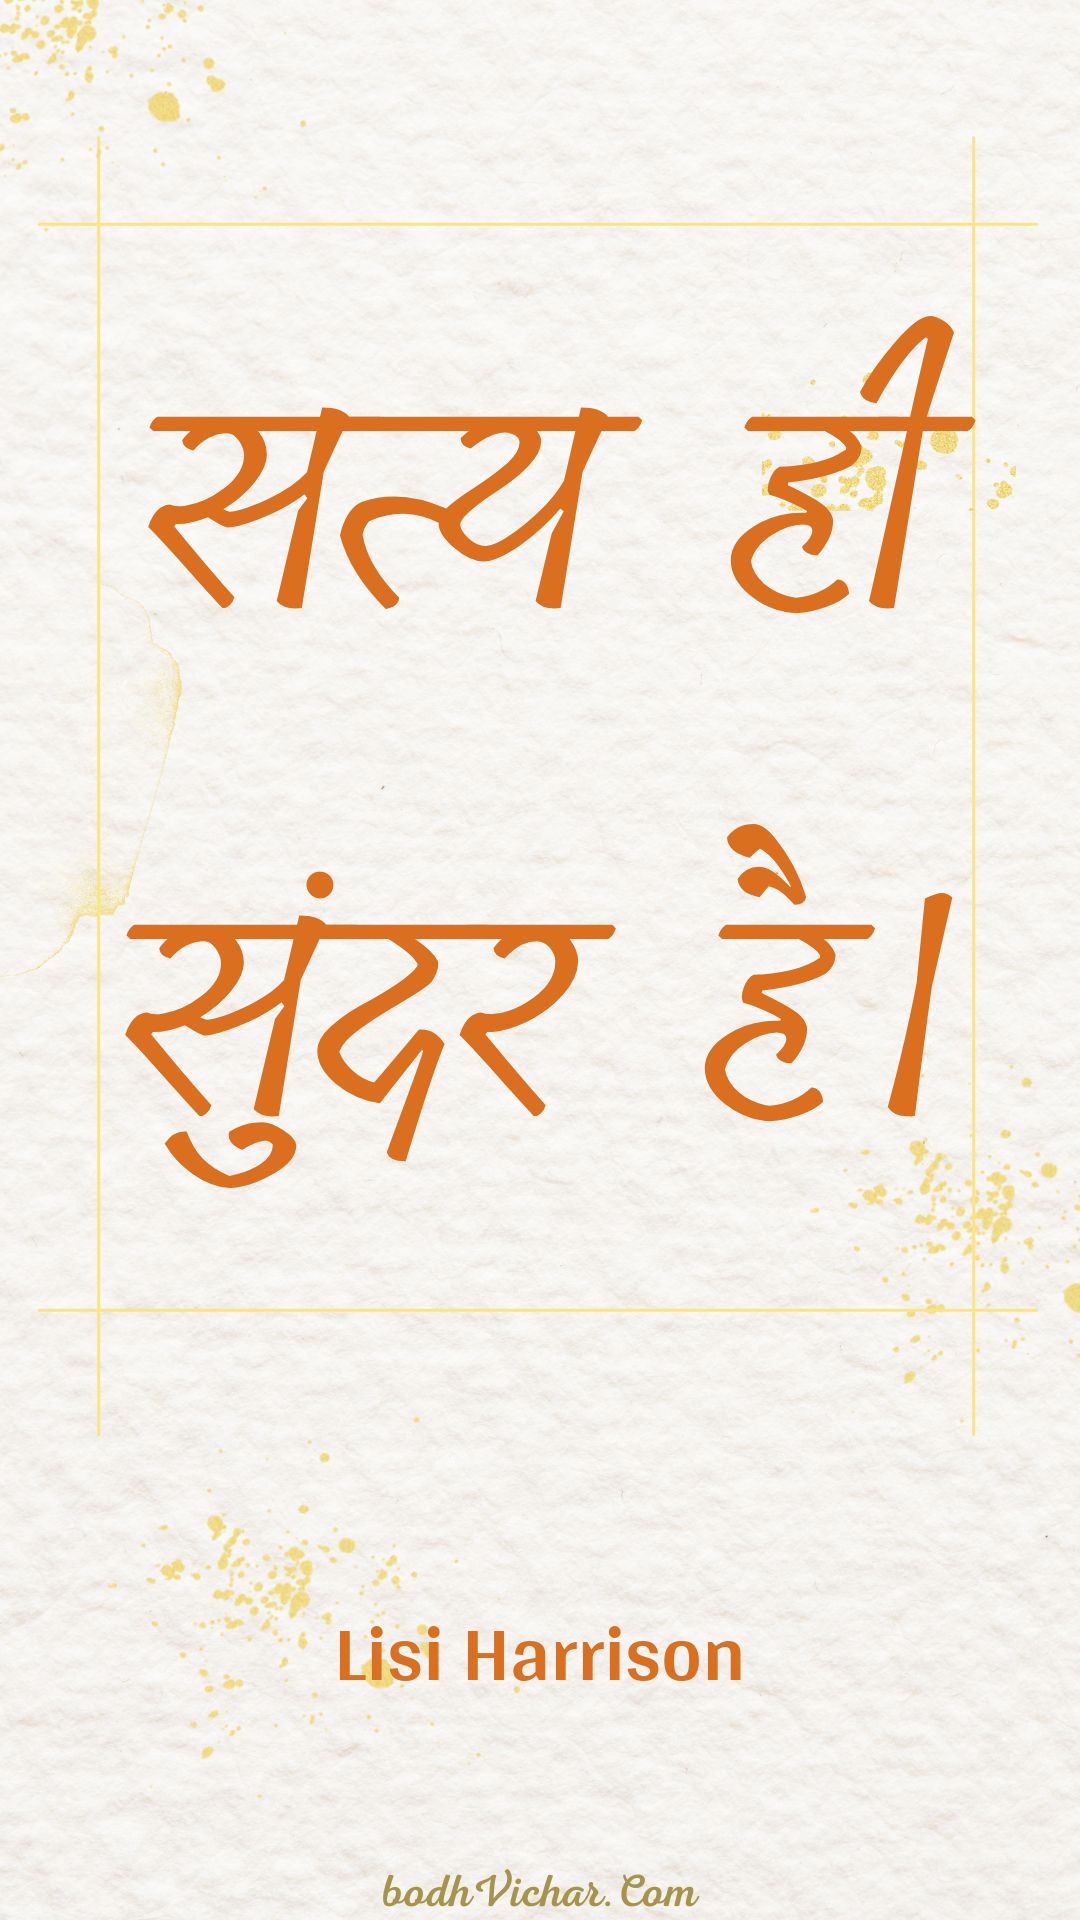 सत्य ही
सुंदर है।
Lisi Harrison
bodhVichar. Com